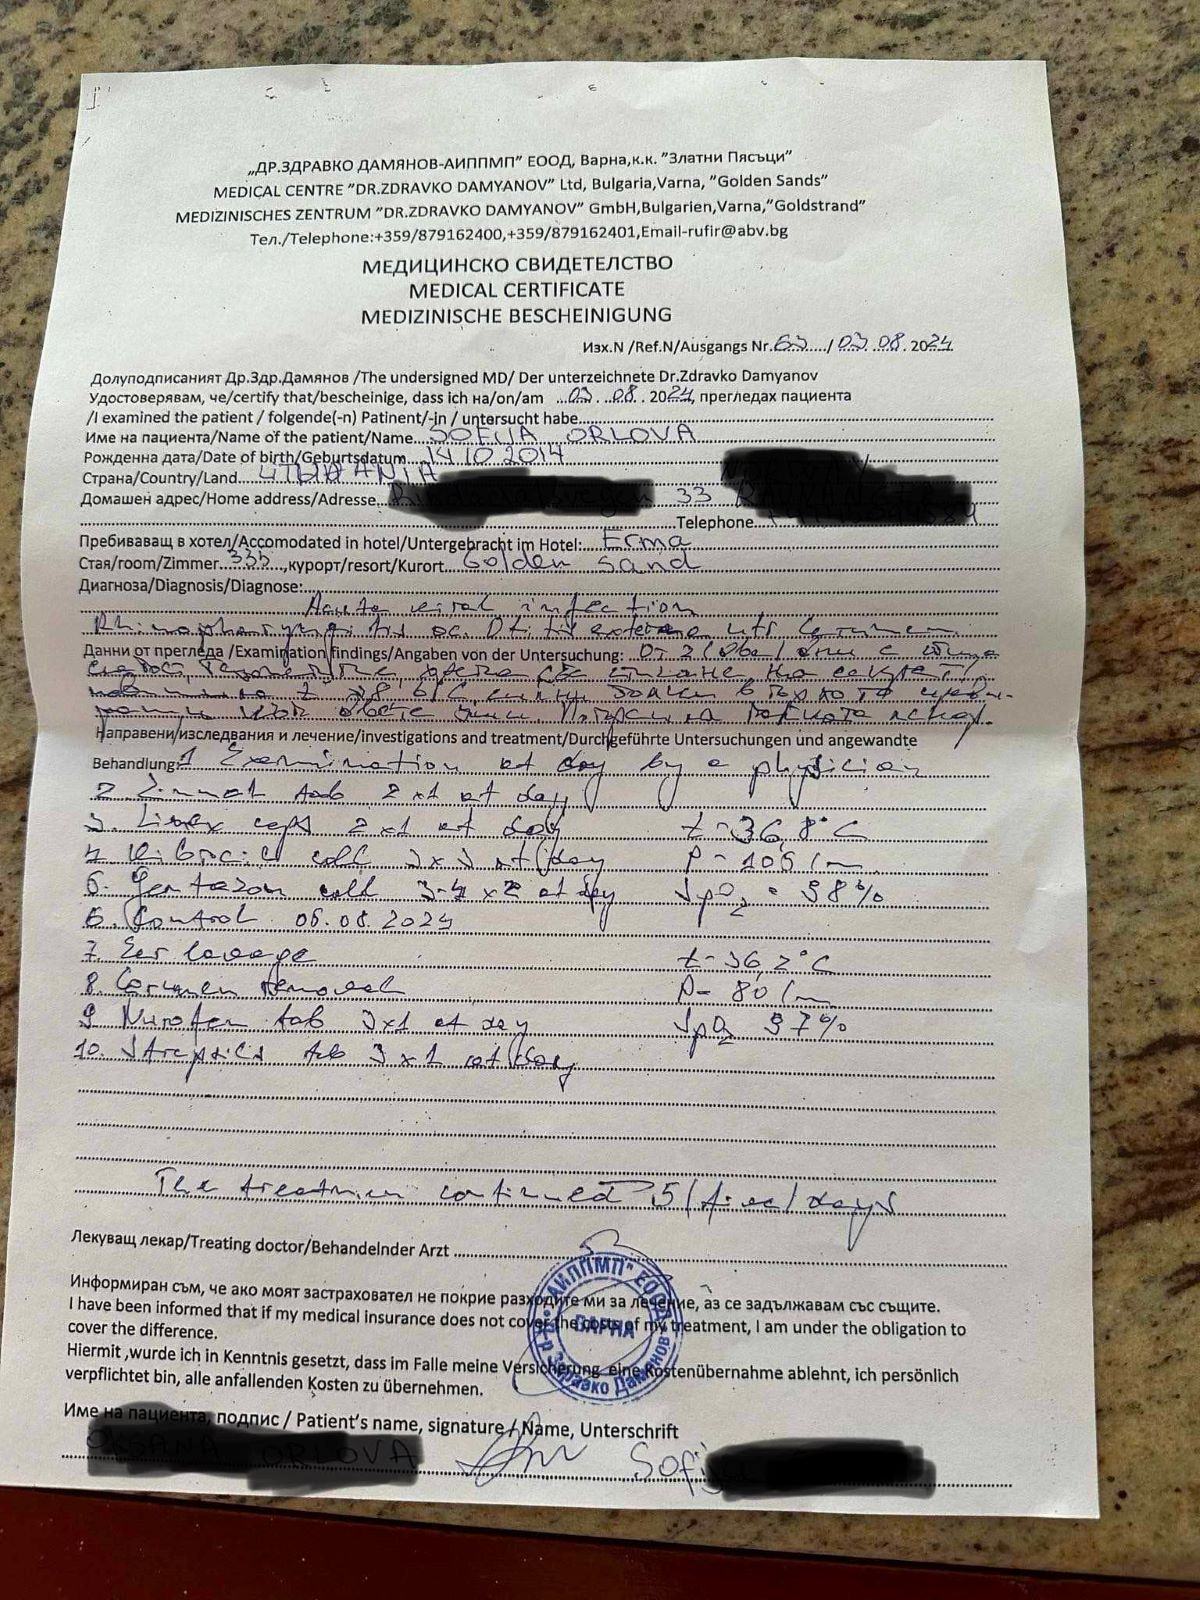 „ДР.ЗДРАВКО ДАМЯНОВ-АИППМП" ЕООД, Варна,к.к. "Златни Пясъци"
MEDICAL CENTRE "DR.ZDRAVKO DAMYANOV" Ltd, Bulgaria,Varna, "Golden Sands"
MEDIZINISCHES ZENTRUM "DR.ZDRAVKO DAMYANOV" GmbH,Bulgarien,Varna,"Goldstrand"
Тел./Telephone:+359/879162400,+359/879162401,Email-rufir@abv.bg
МЕДИЦИНСКО СВИДЕТЕЛСТВО
MEDICAL CERTIFICATE
MEDIZINISCHE BESCHEINIGUNG
Изх.N /Ref.N/Ausgangs Nr.63..../.03.08. 2024
Долуподписаният Др.Здр.Дамянов /The undersigned MD/ Der unterzeichnete Dr.Zdravko Damyanov
Удостоверявам, че/certify that/bescheinige, dass ich на/on/am ...03...08. 2024, прегледах пациента
/I examined the patient / folgende(-n) Patinent/-in / untersucht habe
Име на пациента/Name of the patient/Name SOFIJA ORLOVA
Рожденна дата/Date of birth/Geburtsdatum 14.10.2014
Страна/Country/Land LITHUANIA
Домашен адрес/Home address/Adresse 33
Telephone
Пребиваващ в хотел/Accomodated in hotel/Untergebracht im Hotel: Erma
Стая/room/Zimmer 335, курорт/resort/Kurort Golden sand
Диагноза/Diagnosis/Diagnose:
Acute viral infection
Rhinopharyngitis ac. Otitis externa utr. Cerumen
Данни от прегледа /Examination findings/Angaben von der Untersuchung: От 2 /два/ дни с обща
Направени/изследвания и лечение/investigations and treatment/Durchgeführte Untersuchungen und angewandte
Behandlung: 1 Examination at day by a physician
2 Zinnat tab 2x1 at day
3. Linex caps 2x1 at day t-36,8°C
4 coll 3x at day P-105/m
5. Gentazon coll 3-4 x 2 at day SpO2 - 98%
6. Control 06.08.2024
7. Ear lavage t-36,2°C
8. Cerumen removal P- 80/m
9 Nurofen tab 3x1 at day SpO2 97%
10. Strepsils tab 3x1 at day
The treatment continued 5 /five/ days
Лекуващ лекар/Treating doctor/Behandelnder Arzt
Информиран съм, че ако моят застраховател не покрие разходите ми за лечение, аз се задължавам със същите.
I have been informed that if my medical insurance does not cover the costs of my treatment, I am under the obligation to
cover the difference.
Hiermit ,wurde ich in Kenntnis gesetzt, dass im Falle meine Versicherung eine Kostenübernahme ablehnt, ich persönlich
verpflichtet bin, alle anfallenden Kosten zu übernehmen.
"АИППМП" ЕООД
ВАРНА
Д-р Здравко Дамянов
Име на пациента, подпис / Patient's name, signature / Name, Unterschrift
OKSANA ORLOVA Sofija